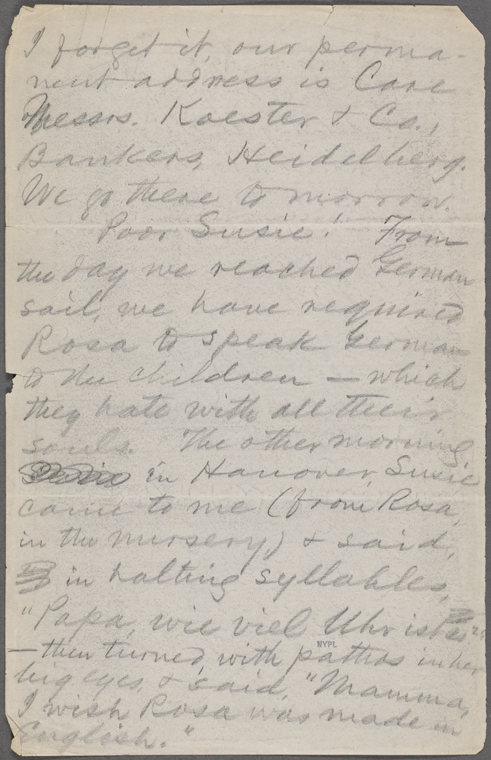 I forget it, our perma-
nent address is Care
Messrs. Koester & Co.,
Bankers, Heidelberg.
We go there to morrow.
Poor Susie! From
the day we reached German
soil, we have required
Rosa to speak German
to the children — which
they hate with all their
souls. The other morning
in Hanover, Susie
came to me (from Rosa,
in the nursery) & said,
in halting syllables,
"Papa, wie viel Uhr ist es?"
— then turned, with pathos in her
big eyes, & said, "Mamma,
I wish Rosa was made in
English."
NYPL